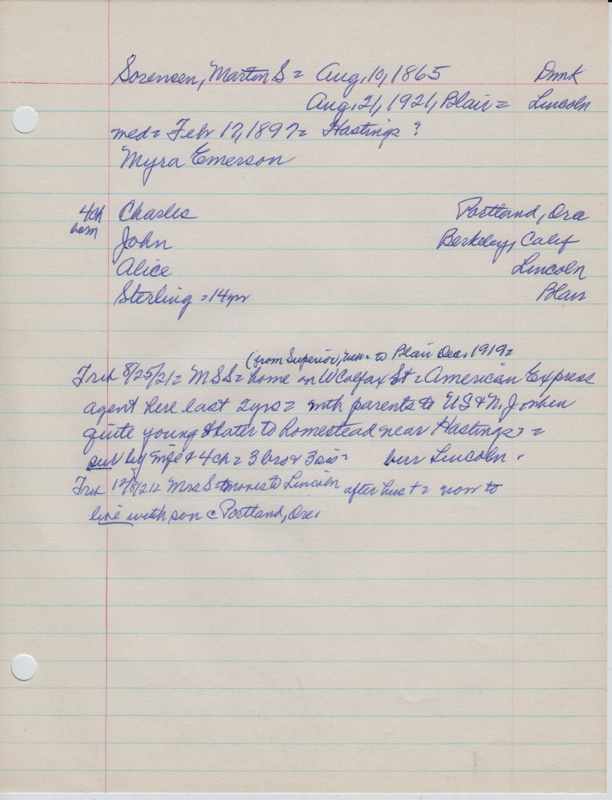 Sorensen, Martin S = Aug, 10, 1865 Dmk
Aug, 21, 1921, Blair = Lincoln
med = Feb 17, 1897 = Hastings ?
Myra Emerson
4ch Charles Portland, Ore
born John Berkeley, Calif
Alice Lincoln
Sterling = 14yr Blair
(from Superior, to Blair Dec, 1919 =
8/25/21 = MSS = home on W Colfax St = American Express
agent here last 2yrs = with parents to US & N.J. when
quite young & later to homestead near Hastings =
sur by wife & 4ch = 3 bro & 3 sis = bur Lincoln -
12/8/21 = Mrs S = moves to Lincoln after hus + = now to
live with son c Portland, Ore,